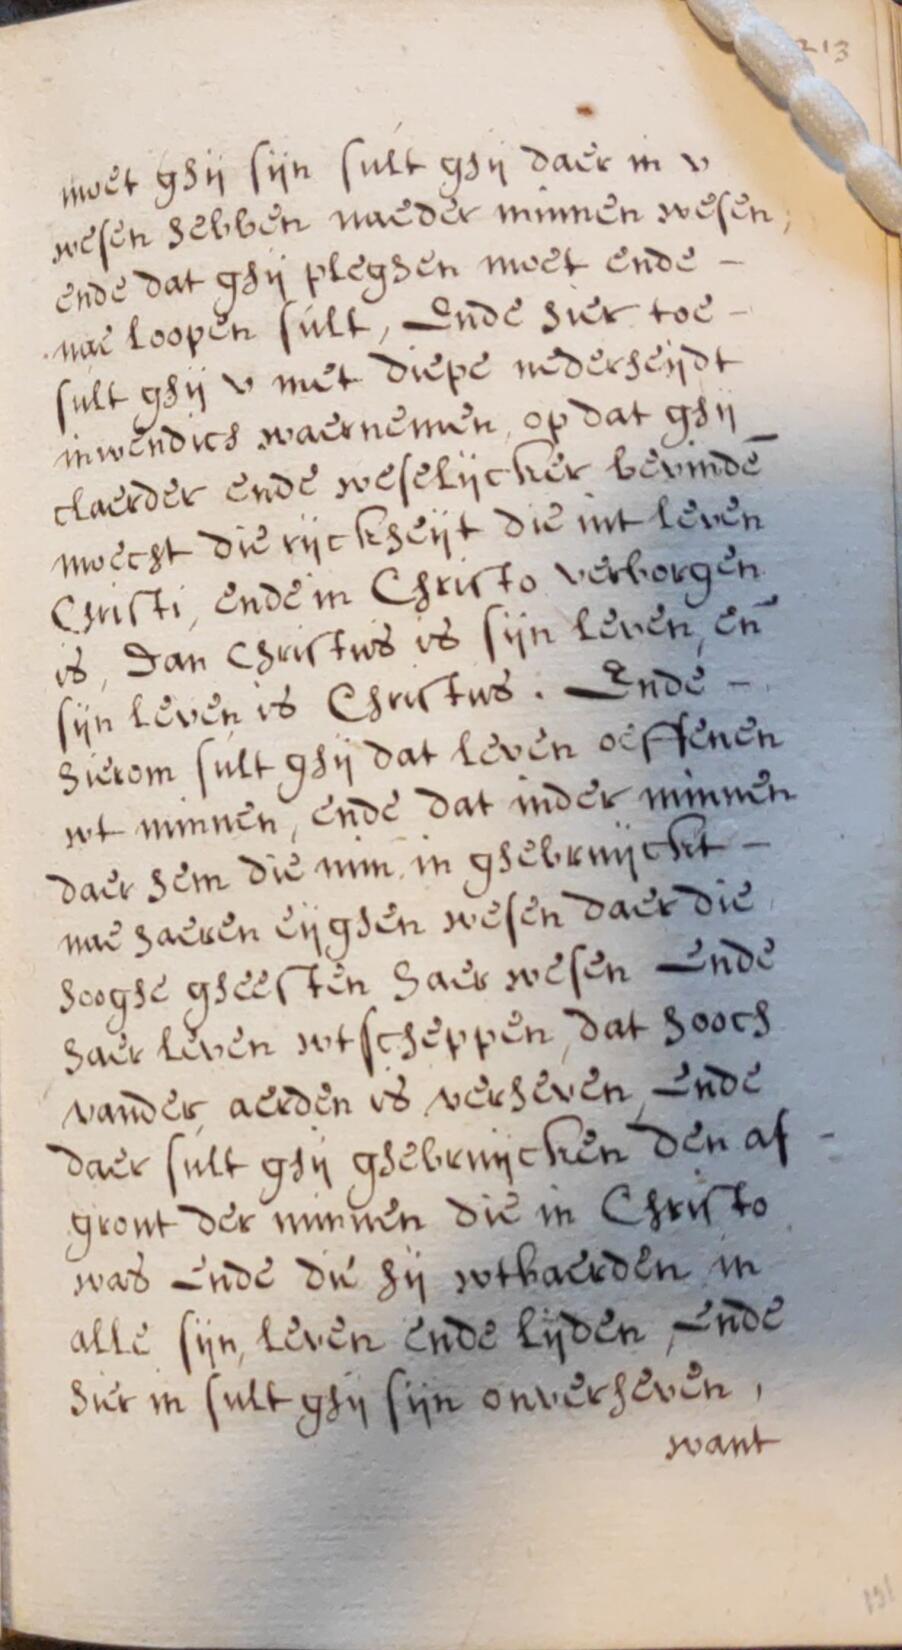 213
moet ghij sijn sult ghij daer in v
wesen hebben naeder minnen wesen,
ende dat ghij pleghen moet ende –
nae loopen sult, Ende hier toe –
sult ghij v met diepe nederheijdt
inwendich waernemen, op dat ghij
claerder ende weselijcker bevindē
moecht die rijckheijt die int leven
Christi, ende in Christo verborgen
is, Dan Christus is sijn leven, en̄
sijn leven is Christus. Ende –
hierom sult ghij dat leven oeffenen
wt minnen, ende dat inder minnen
daer hem die min in ghebruijckt –
nae haeren eijghen wesen daer die
hooghe gheesten haer wesen Ende
haer leven wtscheppen, dat hooch
vander aerden is verheven, Ende
daer sult ghij ghebruijcken den af –
gront der minnen die in Christo
was Ende die hij wtbaerden in
alle sijn leven ende lijden, Ende
hier in sult ghij sijn onverheven,
want